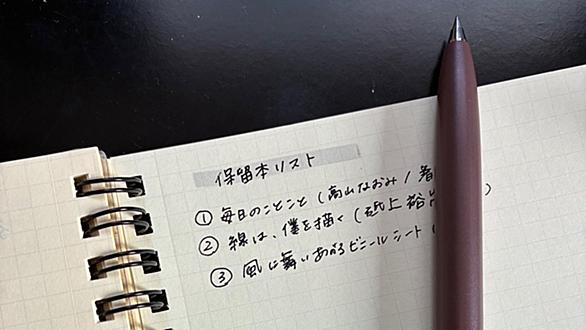 保留本リスト
① 毎日のことこと (高山なおみ / 着
② 線は、僕を描く (砥上裕
③ 風に舞いあがるビニールシート (